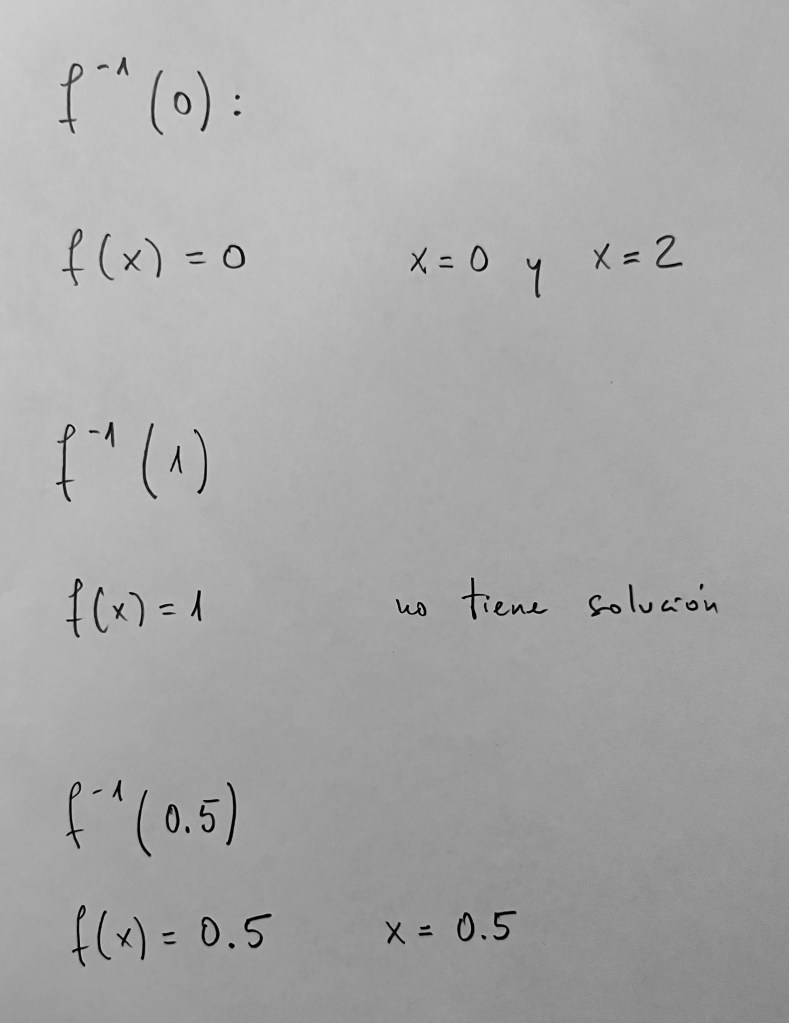 f⁻¹(0):
f(x) = 0 x = 0 y x = 2
f⁻¹(1)
f(x) = 1 no tiene solución
f⁻¹(0.5)
f(x) = 0.5 x = 0.5